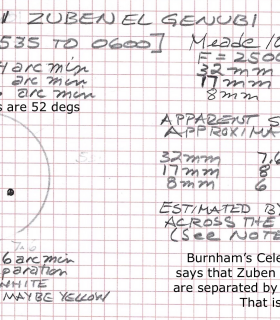 ZUBEN EL GENUBI
535 TO 0600] Meade
arc min F = 250
arc min 32 mm
arc min 17 mm
8mm
s are 52 degs
APPARENT S
APPROXIMA
32mm 7.6
17mm 8
8mm 6
ESTIMATED BY
ACROSS THE
(See NOTE
6 arc min
paration
WHITE
MAYBE YELLOW
Burnham's Cele
says that Zuben
are separated by
That is